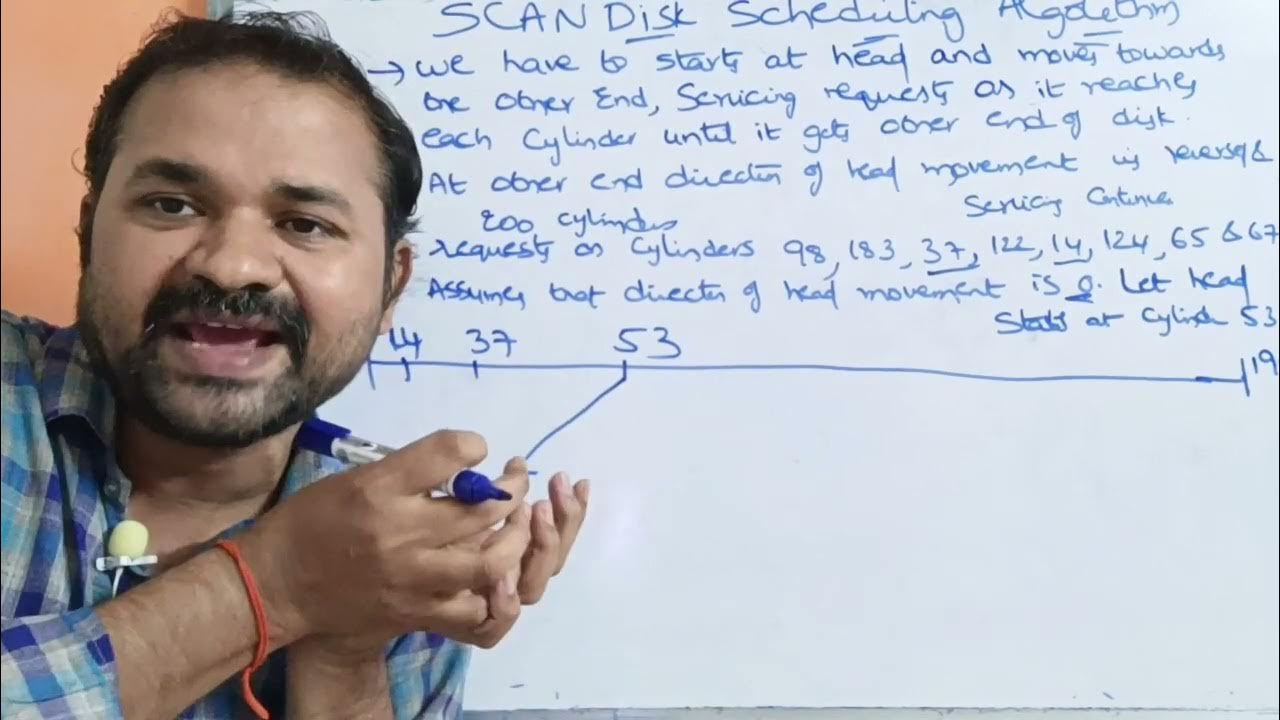 SCAN Disk Scheduling Algorithm
→ we have to starts at head and moves towards
one other End, Servicing requests as it reaches
each Cylinder until it gets other end of disk.
At other end direction of head movement is reversed &
Servicing Continues
200 cylinders
requests on Cylinders 98, 183, 37, 122, 14, 124, 65 & 67
Assumes that direction of head movement is 0. Let head
Starts at Cylinder 53
14 37 53
19